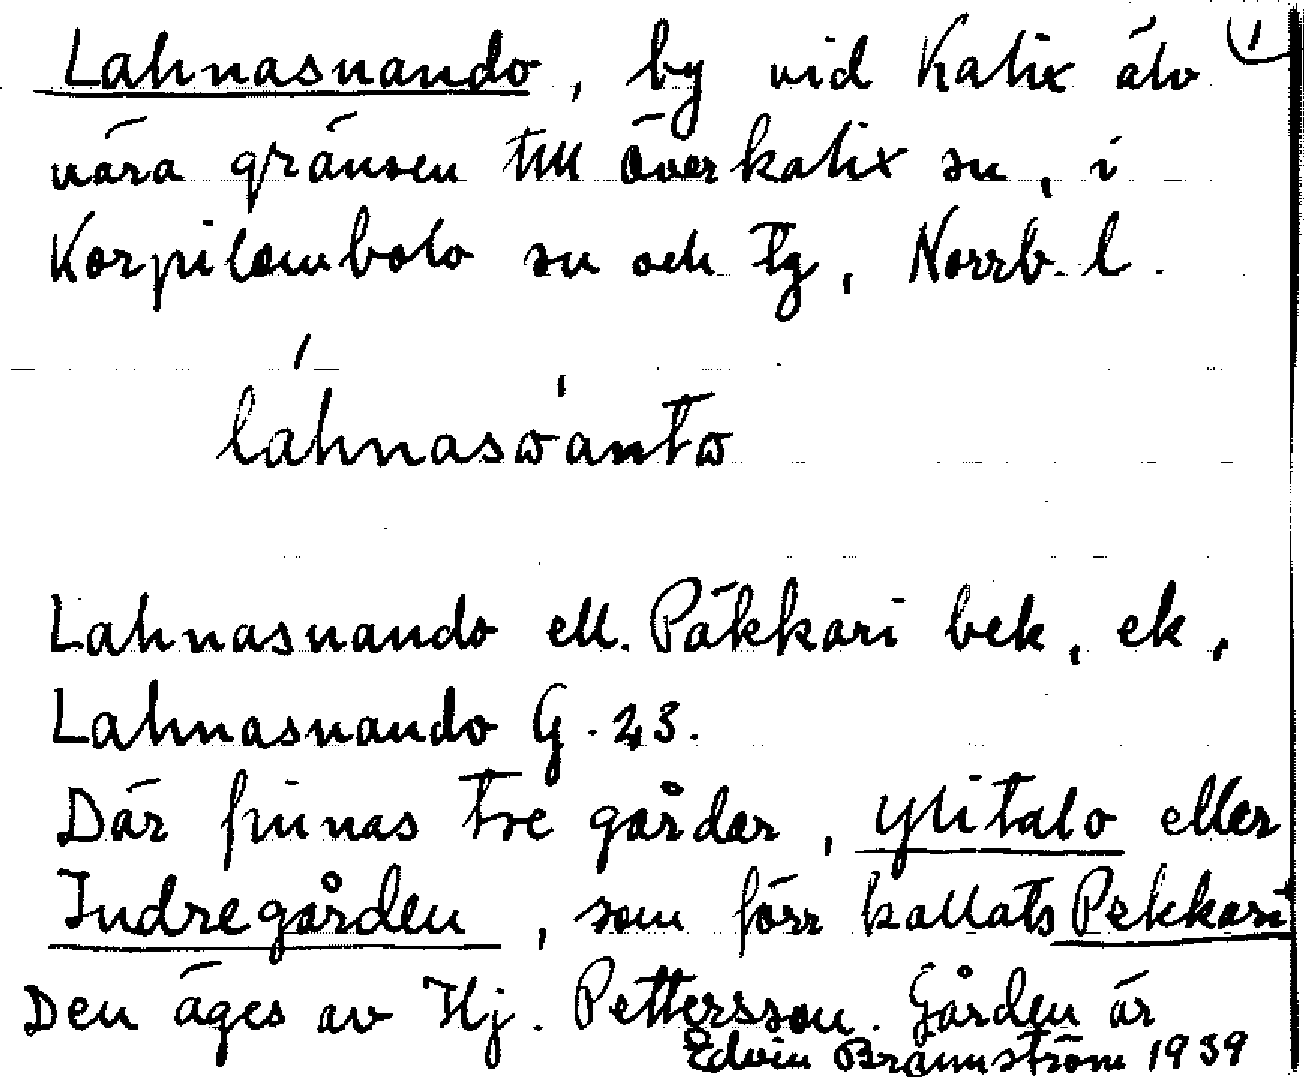 Lahnasuando, by vid Kalix älv 1
nära gränsen till Överkalix sn, i
Korpilombolo sn och tg, Norrb. l.
láhnasɷ̀antɷ
Lahnasuando ell. Päkkari bek, ek,
Lahnasuando G. 23.
Där finnas tre gårdar, Ylitalo eller
Indregården, som förr kallats Pekkari
Den äges av Hj. Pettersson. Gården är
Edvin Brännström 1939